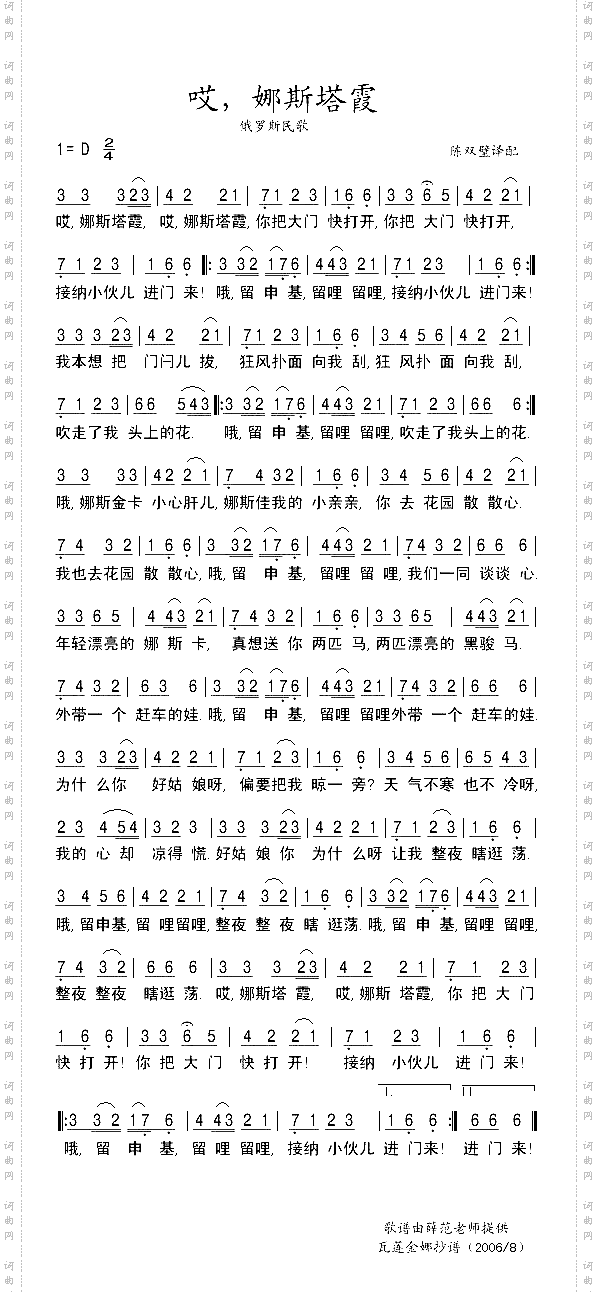 哎，娜斯塔霞
俄罗斯民歌
1= D 2/4
陈双璧译配
3 3 3 2 3 | 4 2 2 1 | 7 1 2 3 | 1 6 6 | 3 3 6 5 | 4 2 2 1 |
哎,娜斯塔霞, 哎,娜斯塔霞,你把大门 快打开,你把 大门 快打开,
7 1 2 3 | 1 6 6 |: 3 3 2 1 7 6 | 4 4 3 2 1 | 7 1 2 3 | 1 6 6 :|
接纳小伙儿 进门 来! 哦,留 申基,留哩 留哩,接纳小伙儿 进门来!
3 3 3 2 3 | 4 2 2 1 | 7 1 2 3 | 1 6 6 | 3 4 5 6 | 4 2 2 1 |
我本想 把 门闩儿 拔, 狂风扑面 向我 刮,狂 风扑 面 向我 刮,
7 1 2 3 | 6 6 5 4 3 |: 3 3 2 1 7 6 | 4 4 3 2 1 | 7 1 2 3 | 6 6 6 :|
吹走了我 头上的花. 哦,留 申基,留哩 留哩,吹走了我头上的花.
3 3 3 3 | 4 2 2 1 | 7 4 3 2 | 1 6 6 | 3 4 5 6 | 4 2 2 1 |
哦,娜斯金卡 小心肝儿,娜斯佳我的 小亲亲, 你 去 花园 散 散心.
7 4 3 2 | 1 6 6 | 3 3 2 1 7 6 | 4 4 3 2 1 | 7 4 3 2 | 6 6 6 |
我也去花园 散 散心,哦,留 申 基, 留哩 留 哩,我们一同 谈谈 心.
3 3 6 5 | 4 4 3 2 1 | 7 4 3 2 | 3 3 6 5 | 4 4 3 2 1 |
年轻漂亮的 娜 斯 卡, 真想送 你 两匹 马,两匹漂亮的 黑骏 马.
7 4 3 2 | 6 3 6 | 3 3 2 1 7 6 | 4 4 3 2 1 | 7 4 3 2 | 6 6 6 |
外带一 个 赶车的娃.哦,留 申 基, 留哩 留哩外带 一个 赶车的娃.
3 3 3 2 3 | 4 2 2 1 | 7 1 2 3 | 1 6 6 | 3 4 5 6 | 6 5 4 3 |
为什 么你 好姑 娘呀, 偏要把我 晾一 旁? 天 气不寒 也不 冷呀,
2 3 4 5 4 | 3 2 3 | 3 3 3 2 3 | 4 2 2 1 | 7 1 2 3 | 1 6 6 |
我的 心 却 凉得 慌.好姑 娘你 为什 么呀 让我 整夜 瞎逛 荡.
3 4 5 6 | 4 2 2 1 | 7 4 3 2 | 1 6 6 | 3 3 2 1 7 6 | 4 4 3 2 1 |
哦,留申基,留 哩留哩,整夜 整 夜 瞎 逛荡.哦,留 申 基,留哩 留哩,
7 4 3 2 | 6 6 6 | 3 3 3 2 3 | 4 2 2 1 | 7 1 2 3 |
整夜 整夜 瞎逛 荡. 哎,娜斯塔 霞, 哎,娜斯 塔霞,你 把 大门
1 6 6 | 3 3 6 5 | 4 2 2 1 | 7 1 2 3 | 1 6 6 |
快打 开! 你 把 大 门 快 打 开! 接纳 小伙儿 进 门 来!
I. II
|: 3 3 2 1 7 6 | 4 4 3 2 1 | 7 1 2 3 | 1 6 6 :| 6 6 6 |
哦, 留 申 基, 留 哩 留哩,接纳 小伙儿 进 门来! 进 门 来!
歌谱由薛范老师提供
瓦莲金娜抄谱（2006/8）
词曲网